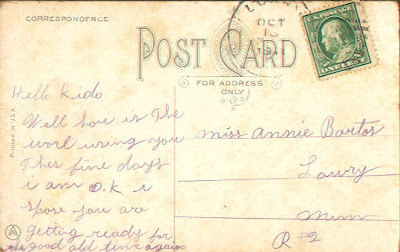 CORRESPONDENCE
OCT
POST CARD
FOR ADDRESS
ONLY
U.S. POSTAGE
ONE CENT
Printed in U.S.A.
Hello Kido
Well how is The
worl using you
This fine days
i am o.k i
spose you are
getting ready for
the good old time again
Miss Annie Bartos
Lowry
Minn
R #2
A